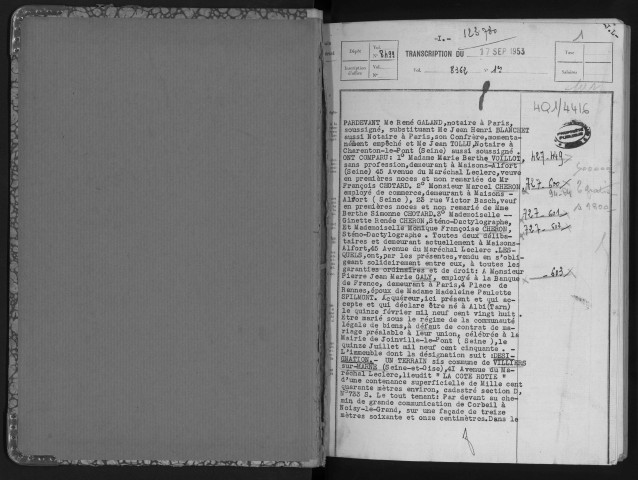 I.- 123780
1
Dépôt
Vol. N° 8499
TRANSCRIPTION DU 17 SEP 1953
Taxe
Vol. 8362 n° 19
Salaires
4Q1/4416
PARDEVANT Me René GALAND, notaire à Paris,
soussigné, substituant Me Jean Henri BLANCHET
aussi Notaire à Paris, son Confrère, momenta-
nément empêché et Me Jean TOLLU, Notaire à
Charenton-le-Pont (Seine) aussi soussigné.
ONT COMPARU: 1° Madame Marie Berthe VOILLOT,
sans profession, demeurant à Maisons-Alfort
(Seine) 45 Avenue du Maréchal Leclerc, veuve
en premières noces et non remariée de Mr
François CHOTARD. 2° Monsieur Marcel CHERON
employé de commerce, demeurant à Maisons-
Alfort (Seine), 23 rue Victor Basch, veuf
en premières noces et non remarié de Mme
Berthe Simonne CHOTARD. 3° Mademoiselle --
Ginette Renée CHERON, Sténo-Dactylographe,
Et Mademoiselle Monique Françoise CHERON,
Sténo-Dactylographe. Toutes deux céliba-
taires et demeurant actuellement à Maisons-
Alfort, 45 Avenue du Maréchal Leclerc. LES-
QUELS, ont, par les présentes, vendu en s'obli-
geant solidairement entre eux, à toutes les
garanties ordinaires et de droit: A Monsieur
Pierre Jean Marie GALY, employé à la Banque
de France, demeurant à Paris, 4 Place de
Rennes, époux de Madame Madeleine Paulette
SPILMONT. Acquéreur, ici présent et qui ac-
cepte et qui déclare être né à Albi (Tarn)
le quinze février mil neuf cent vingt huit.
Etre marié sous le régime de la communauté
légale de biens, à défaut de contrat de ma-
riage préalable à leur union, célébrée à la
Mairie de Joinville-le-Pont (Seine), le
quinze Juillet mil neuf cent cinquante. -
L'immeuble dont la désignation suit :DESI-
GNATION.- UN TERRAIN sis commune de VILLIERS
sur-MARNE (Seine-et-Oise), 41 Avenue du Ma-
réchal Leclerc, lieudit " LA COTE ROTIE "
d'une contenance superficielle de Mille cent
quarante mètres environ, cadastré section D,
N°733 S. Le tout tenant: Par devant au che-
min de grande communication de Corbeil à
Noizy-le-Grand, sur une façade de treize
mètres soixante et onze centimètres. Dans le